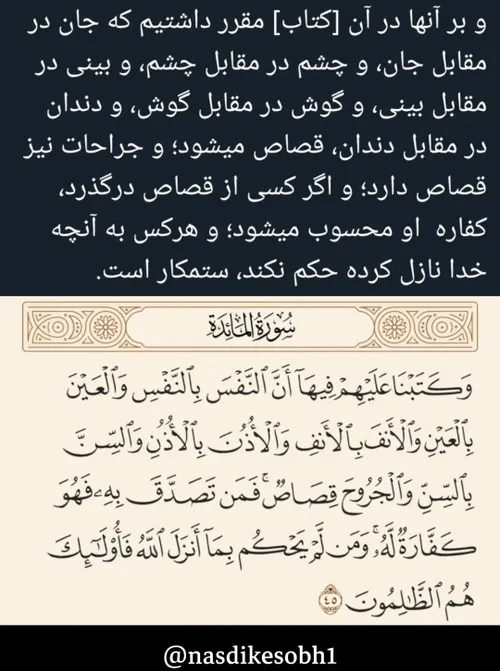 و بر آنها در آن [کتاب] مقرر داشتیم که جان در
مقابل جان، و چشم در مقابل چشم، و بینی در
مقابل بینی، و گوش در مقابل گوش، و دندان
در مقابل دندان، قصاص میشود؛ و جراحات نیز
قصاص دارد؛ و اگر کسی از قصاص درگذرد،
کفاره او محسوب میشود؛ و هرکس به آنچه
خدا نازل کرده حکم نکند، ستمکار است.
سُورَةُ المَائِدَةِ
وَكَتَبْنَا عَلَيْهِمْ فِيهَآ أَنَّ ٱلنَّفْسَ بِٱلنَّفْسِ وَٱلْعَيْنَ
بِٱلْعَيْنِ وَٱلْأَنفَ بِٱلْأَنفِ وَٱلْأُذُنَ بِٱلْأُذُنِ وَٱلسِّنَّ
بِٱلسِّنِّ وَٱلْجُرُوحَ قِصَاصٌۚ فَمَن تَصَدَّقَ بِهِۦ فَهُوَ
كَفَّارَةٌ لَّهُۥۚ وَمَن لَّمْ يَحْكُم بِمَآ أَنزَلَ ٱللَّهُ فَأُو۟لَـٰٓئِكَ
هُمُ ٱلظَّـٰلِمُونَ ٤٥
@nasdikesobh1